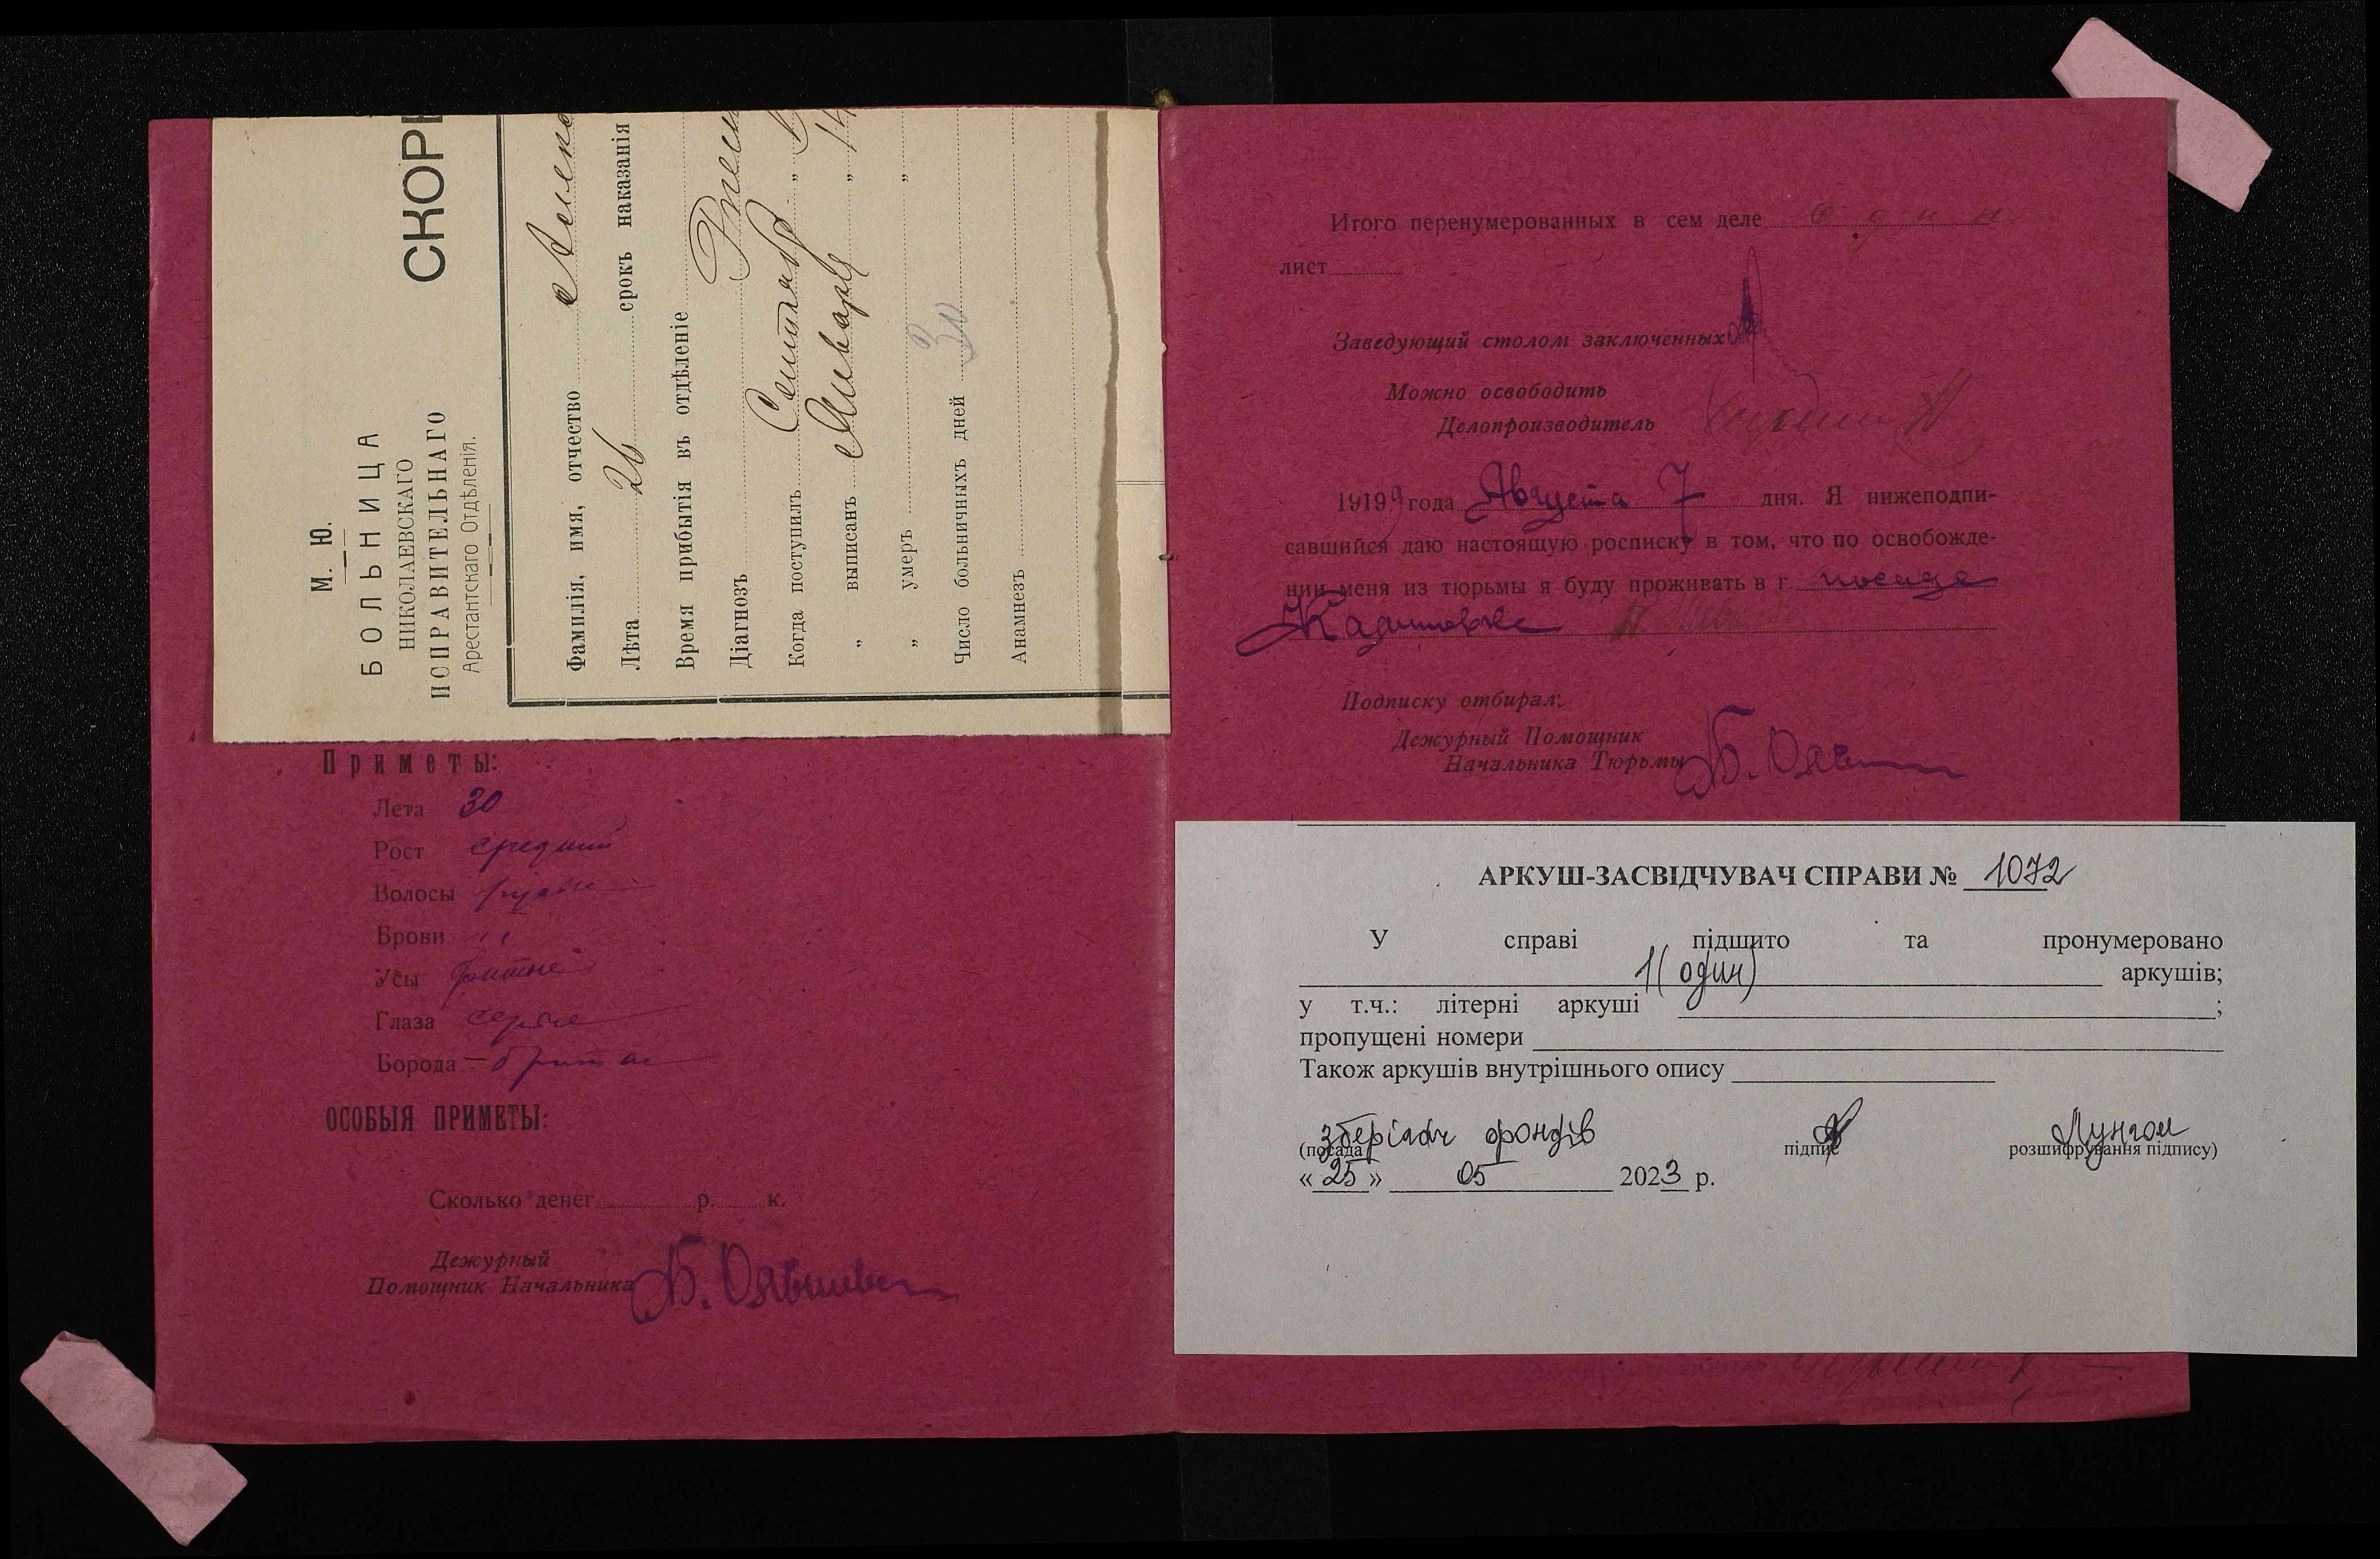 М. Ю.
БОЛЬНИЦА
НИКОЛАЕВСКАГО
ИСПРАВИТЕЛЬНАГО
Арестантскаго Отдѣленія.
СКОРБ
Фамилія, имя, отчество
Лѣта 26 срокъ наказанія
Время прибытія въ отдѣленіе
Діагнозъ
Когда поступилъ Сентября „
„ выписанъ Января „ 14
„ умеръ „
Число больничныхъ дней 30
Анамнезъ
Приметы:
Лета 30
Рост средний
Волосы русые
Брови "
Усы бритые
Глаза серые
Борода — бритая
ОСОБЫЯ ПРИМЕТЫ:
Сколько денег р. к.
Дежурный
Помощник Начальника
Итого перенумерованных в сем деле один
лист
Заведующий столом заключенных
Можно освободить
Делопроизводитель
1919 года Августа 7 дня. Я нижеподпи-
савшийся даю настоящую росписку в том, что по освобожде-
нии меня из тюрьмы я буду проживать в г. посаде
Подписку отбирал:
Дежурный Помощник
Начальника Тюрьмы
АРКУШ-ЗАСВІДЧУВАЧ СПРАВИ № 1072
У справі підшито та пронумеровано
1 (один) аркушів;
у т.ч.: літерні аркуші ;
пропущені номери
Також аркушів внутрішнього опису
зберігач фондів
(посада підпис розшифрування підпису)
« 25 » 05 2023 р.